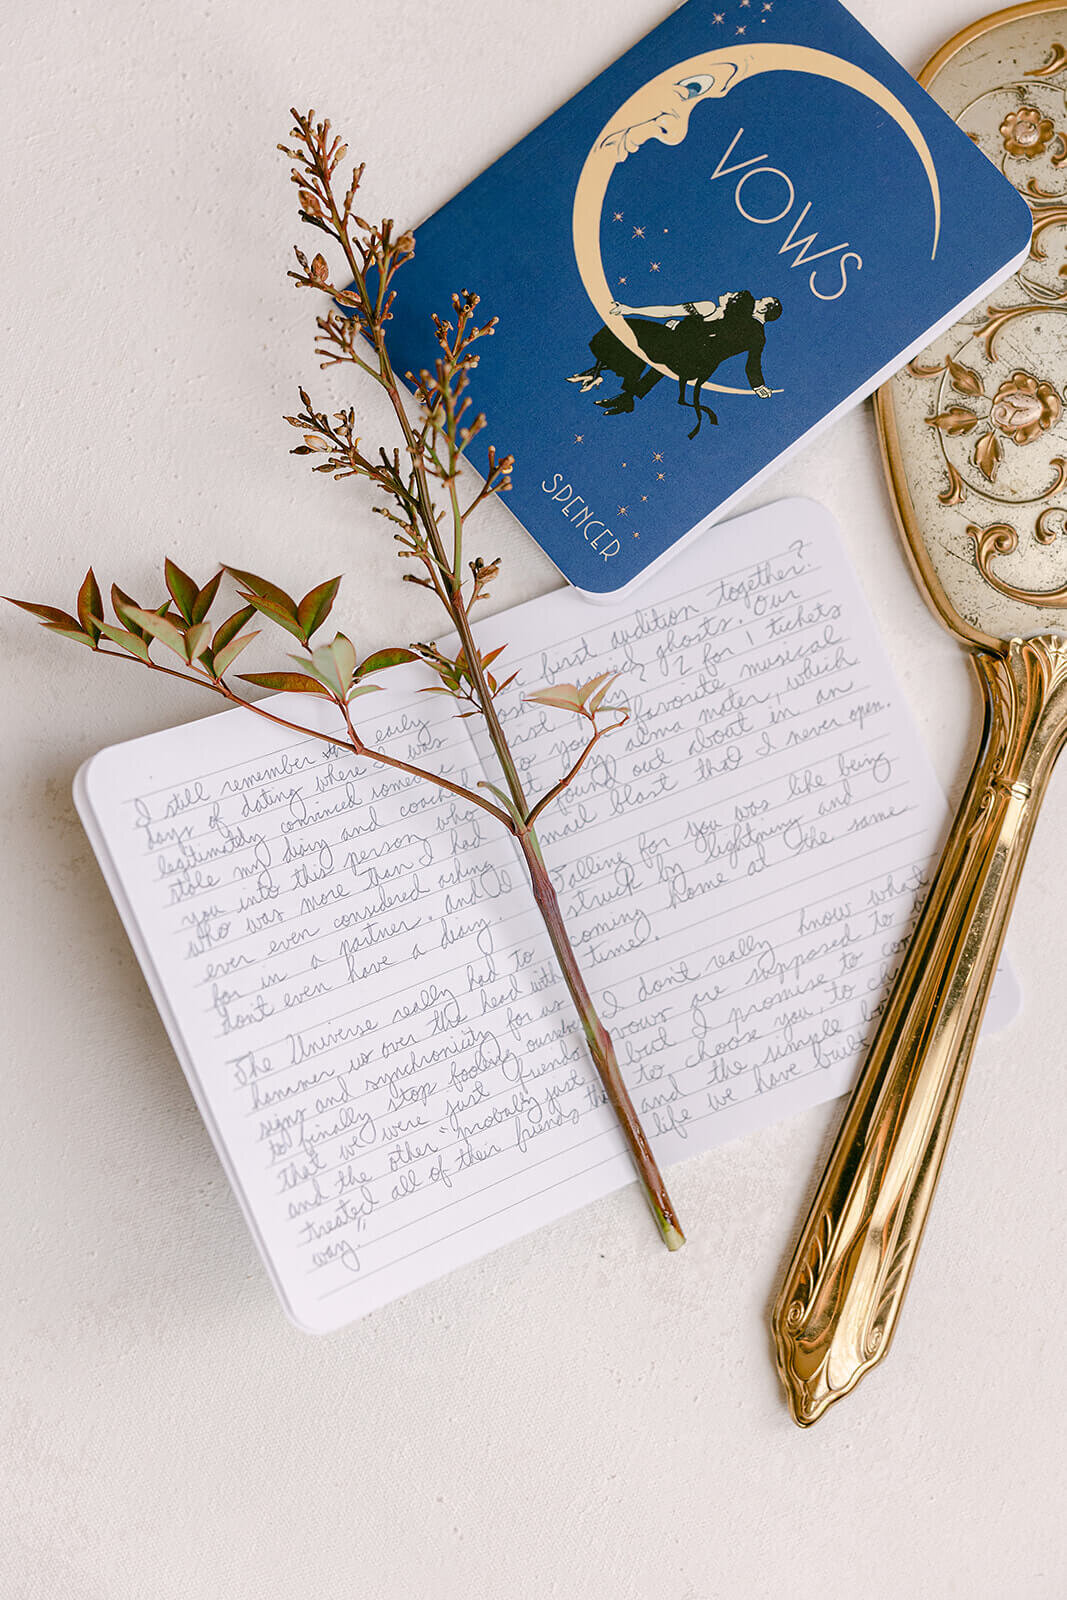 VOWS
SPENCER
I still remember the early
days of dating where I was
legitimately convinced someone
stole my diary and coached
you into this person who
was more than I had
ever even considered asking
for in a partner. And I
don't even have a diary.
The Universe really had to
hammer us over the head with
signs and synchronicity for us
to finally stop fooling ourselves
that we were just friends
and the other "probably just
treated all of their friends this
way."
first audition together?
married ghosts. Our
first 2 for 1 tickets
to your favorite musical
at my alma mater, which
found out about in an
email blast that I never open.
Falling for you was like being
struck by lightning and
coming home at the same
time.
I don't really know what
vows are supposed to
but I promise to
to choose you, to
and the simple
life we have built